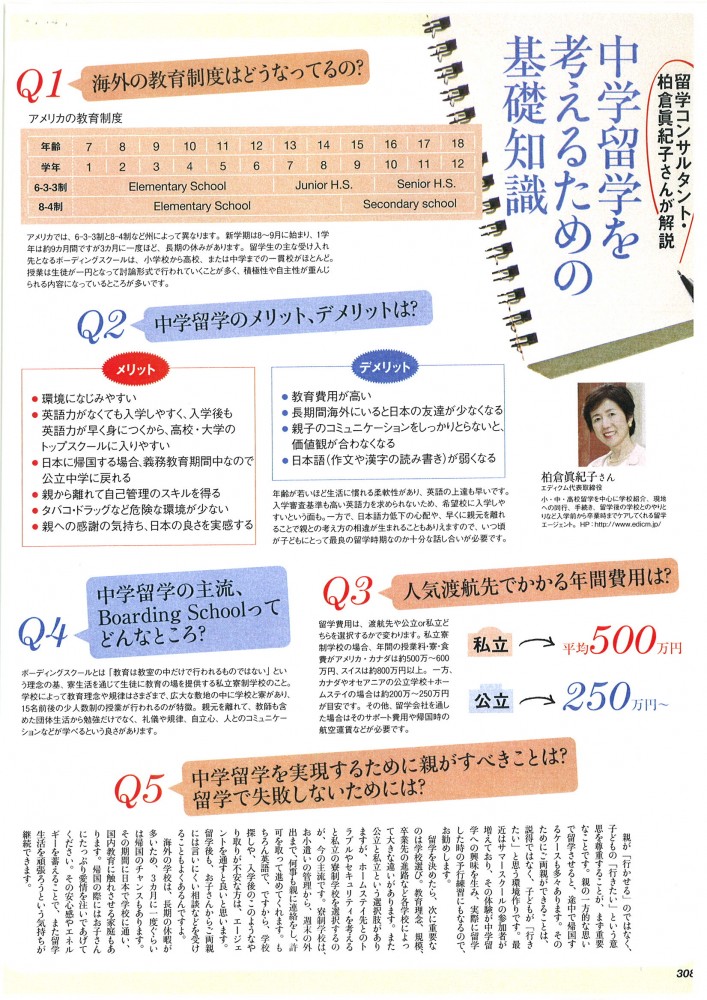 留学コンサルタント・
柏倉眞紀子さんが解説
中学留学を
考えるための
基礎知識
Q1 海外の教育制度はどうなってるの?
アメリカの教育制度
年齢 7 8 9 10 11 12 13 14 15 16 17 18
学年 1 2 3 4 5 6 7 8 9 10 11 12
6-3-3制 Elementary School Junior H.S. Senior H.S.
8-4制 Elementary School Secondary school
アメリカでは、6-3-3制と8-4制など州によって異なります。新学期は8〜9月に始まり、1学
年は約9カ月間ですが3カ月に一度ほど、長期の休みがあります。留学生の主な受け入れ
先となるボーディングスクールは、小学校から高校、または中学までの一貫校がほとんど。
授業は生徒が一円となって討論形式で行われていくことが多く、積極性や自主性が重んじ
られる内容になっているところが多いです。
Q2 中学留学のメリット、デメリットは?
メリット
● 環境になじみやすい
● 英語力がなくても入学しやすく、入学後も
英語力が早く身につくから、高校・大学の
トップスクールに入りやすい
● 日本に帰国する場合、義務教育期間中なので
公立中学に戻れる
● 親から離れて自己管理のスキルを得る
● タバコ・ドラッグなど危険な環境が少ない
● 親への感謝の気持ち、日本の良さを実感する
デメリット
● 教育費用が高い
● 長期間海外にいると日本の友達が少なくなる
● 親子のコミュニケーションをしっかりとらないと、
価値観が合わなくなる
● 日本語(作文や漢字の読み書き)が弱くなる
年齢が若いほど生活に慣れる柔軟性があり、英語の上達も早いです。
入学審査基準も高い英語力を求められないため、希望校に入学しや
すいという面も。一方で、日本語力低下の心配や、早くに親元を離れ
ることで親との考え方の相違が生まれることもありえますので、いつ頃
が子どもにとって最良の留学時期なのか十分な話し合いが必要です。
柏倉眞紀子さん
エディクム代表取締役
小・中・高校留学を中心に学校紹介、現地
への同行、手続き、留学後の学校とのやりと
りなど入学前から卒業時までケアしてくれる留学
エージェント。HP:http://www.edicm.jp/
Q3 人気渡航先でかかる年間費用は?
留学費用は、渡航先や公立or私立と
ちらを選択するかで変わります。私立寮
制学校の場合、年間の授業料・寮・食
費がアメリカ・カナダは約500万〜600
万円、スイスは約800万円以上。一方、
カナダやオセアニアの公立学校+ホー
ムステイの場合は約200万〜250万円
が目安です。その他、留学会社を通し
た場合はそのサポート費用や帰国時の
航空運賃などが必要です。
私立 平均500万円
公立 250万円〜
Q4 中学留学の主流、
Boarding Schoolって
どんなところ?
ボーディングスクールとは「教育は教室の中だけで行われるものではない」とい
う理念の基、寮生活を通じて生徒に教育の場を提供する私立寮制学校のこと。
学校によって教育理念や規律はさまざまで、広大な敷地の中に学校と寮があり、
15名前後の少人数制の授業が行われるのが特徴。親元を離れて、教師も含
めた団体生活から勉強だけでなく、礼儀や規律、自立心、人とのコミュニケー
ションなどが学べるという良さがあります。
Q5 中学留学を実現するために親がすべきことは?
留学で失敗しないためには?
親が「行かせる」のではなく、
子どもの「行きたい」という意
思を尊重することが、まず重要
なことです。親の一方的な思い
で留学させると、途中で帰国す
るケースも多々あります。その
ためにご両親ができることは、
説得ではなく、子どもが「行き
たい」と思う環境作りです。最
近はサマースクールの参加者が
増えており、その体験が中学留
学への興味を生み、実際に留学
した時の予行練習にもなるので、
お勧めします。
留学を決めたら、次に重要な
のは学校選び。教育理念、規模、
卒業先の進路など各学校によっ
て大きな違いがあります。また
公立と私立という選択肢があり
ますが、ホームステイ先とのト
ラブルやセキュリティを考える
と私立の寮制学校を選択するの
が、今の主流です。寮制学校は、
お小遣いの管理から、週末の外
出まで、何事も親に連絡をし、許
可を取って進めてくれます。も
ちろん英語で。ですから、学校
探しや、入学後のこのようなや
り取りが不安な方は、エージェ
ントを通すと良いと思います。
留学後も、お子さんからご両親
には言いにくい相談などを受け
ることもよくあるんですよ。
海外の学校は、長期の休暇が
多いため、3カ月に一度ぐらい
は帰国のチャンスもあります。
その期間に日本で学校に通い、
国内教育に触れさせる家庭もあ
ります。帰国の際にはお子さん
にたっぷり愛情を注いであげて
ください。その安心感やエネル
ギーを蓄えることで、また留学
生活を頑張ろうという気持ちが
継続できます。
308